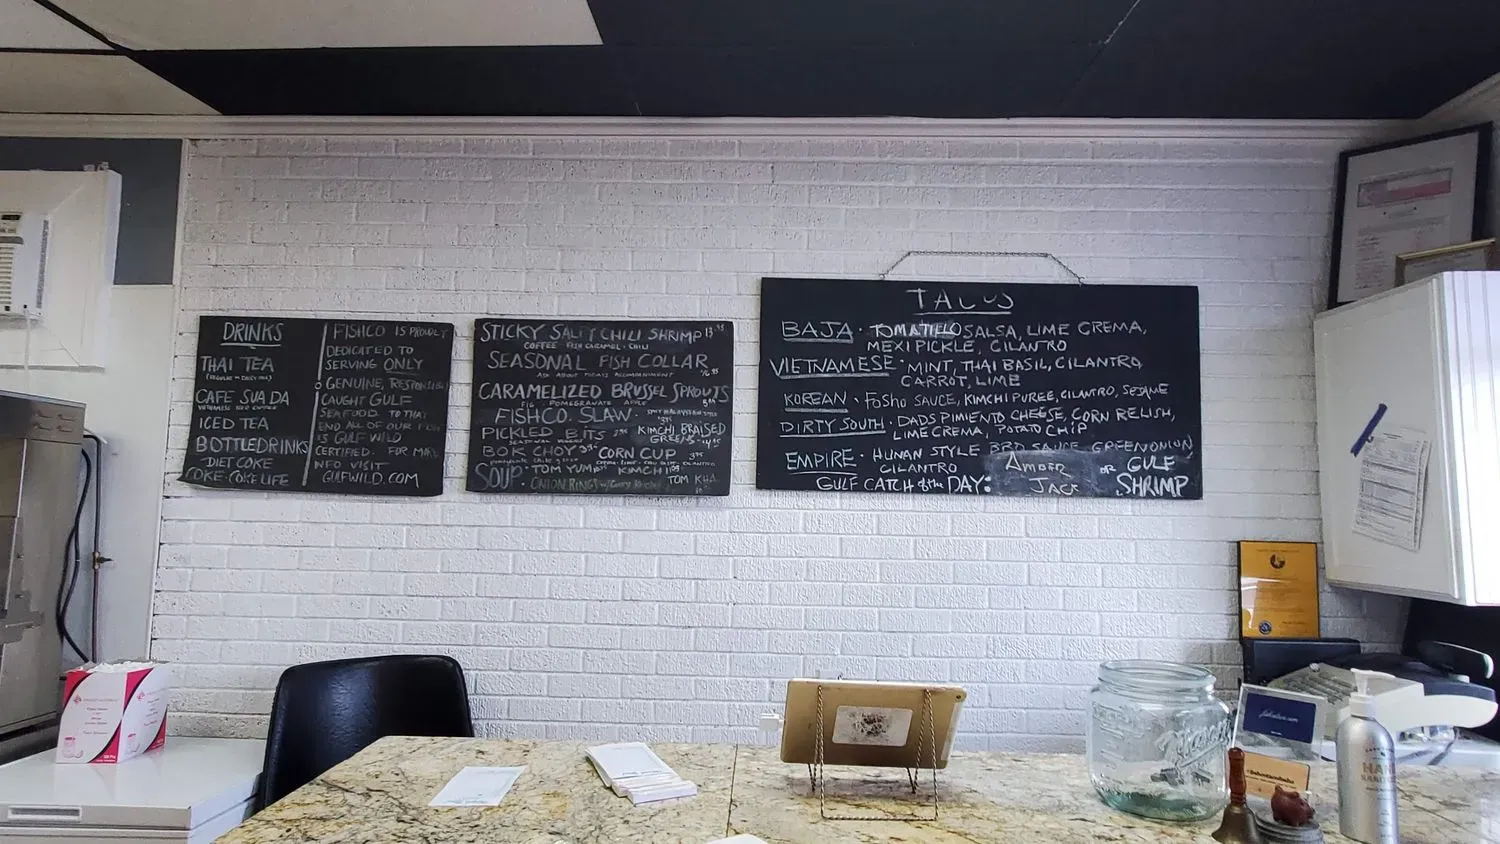 DRINKS
THAI TEA
CAFE SUA DA
ICED TEA
BOTTLE DRINKS
DIET COKE
COKE · COKE LIFE
FISHCO IS PROUDLY
DEDICATED TO
SERVING ONLY
GENUINE, RESPONSIBLY
CAUGHT GULF
SEAFOOD TO THAT
END ALL OF OUR FISH
IS GULF WILD
CERTIFIED. FOR MORE
INFO VISIT
GULFWILD.COM
STICKY SALTY CHILI SHRIMP
COFFEE FISH CARAMEL · CHILI
SEASONAL FISH COLLAR
ASK ABOUT TODAYS ACCOMPANIMENT
CARAMELIZED BRUSSEL SPROUTS
FIG · POMEGRANATE APPLE
FISHCO. SLAW ·
PICKLED BITS
KIMCHI BRAISED
GREENS
BOK CHOY
CORN CUP
SOUP · TOM YUM
KIMCHI
TOM KHA
ONION RINGS
TACOS
BAJA · TOMATILLO SALSA, LIME CREMA,
MEXI PICKLE, CILANTRO
VIETNAMESE · MINT, THAI BASIL, CILANTRO,
CARROT, LIME
KOREAN · FOSHO SAUCE, KIMCHI PUREE, CILANTRO, SESAME
DIRTY SOUTH · DADS PIMIENTO CHEESE, CORN RELISH,
LIME CREMA, POTATO CHIP
EMPIRE · HUNAN STYLE BBQ SAUCE GREEN ONION,
CILANTRO
GULF CATCH of the DAY: AMBER JACK OR GULF SHRIMP